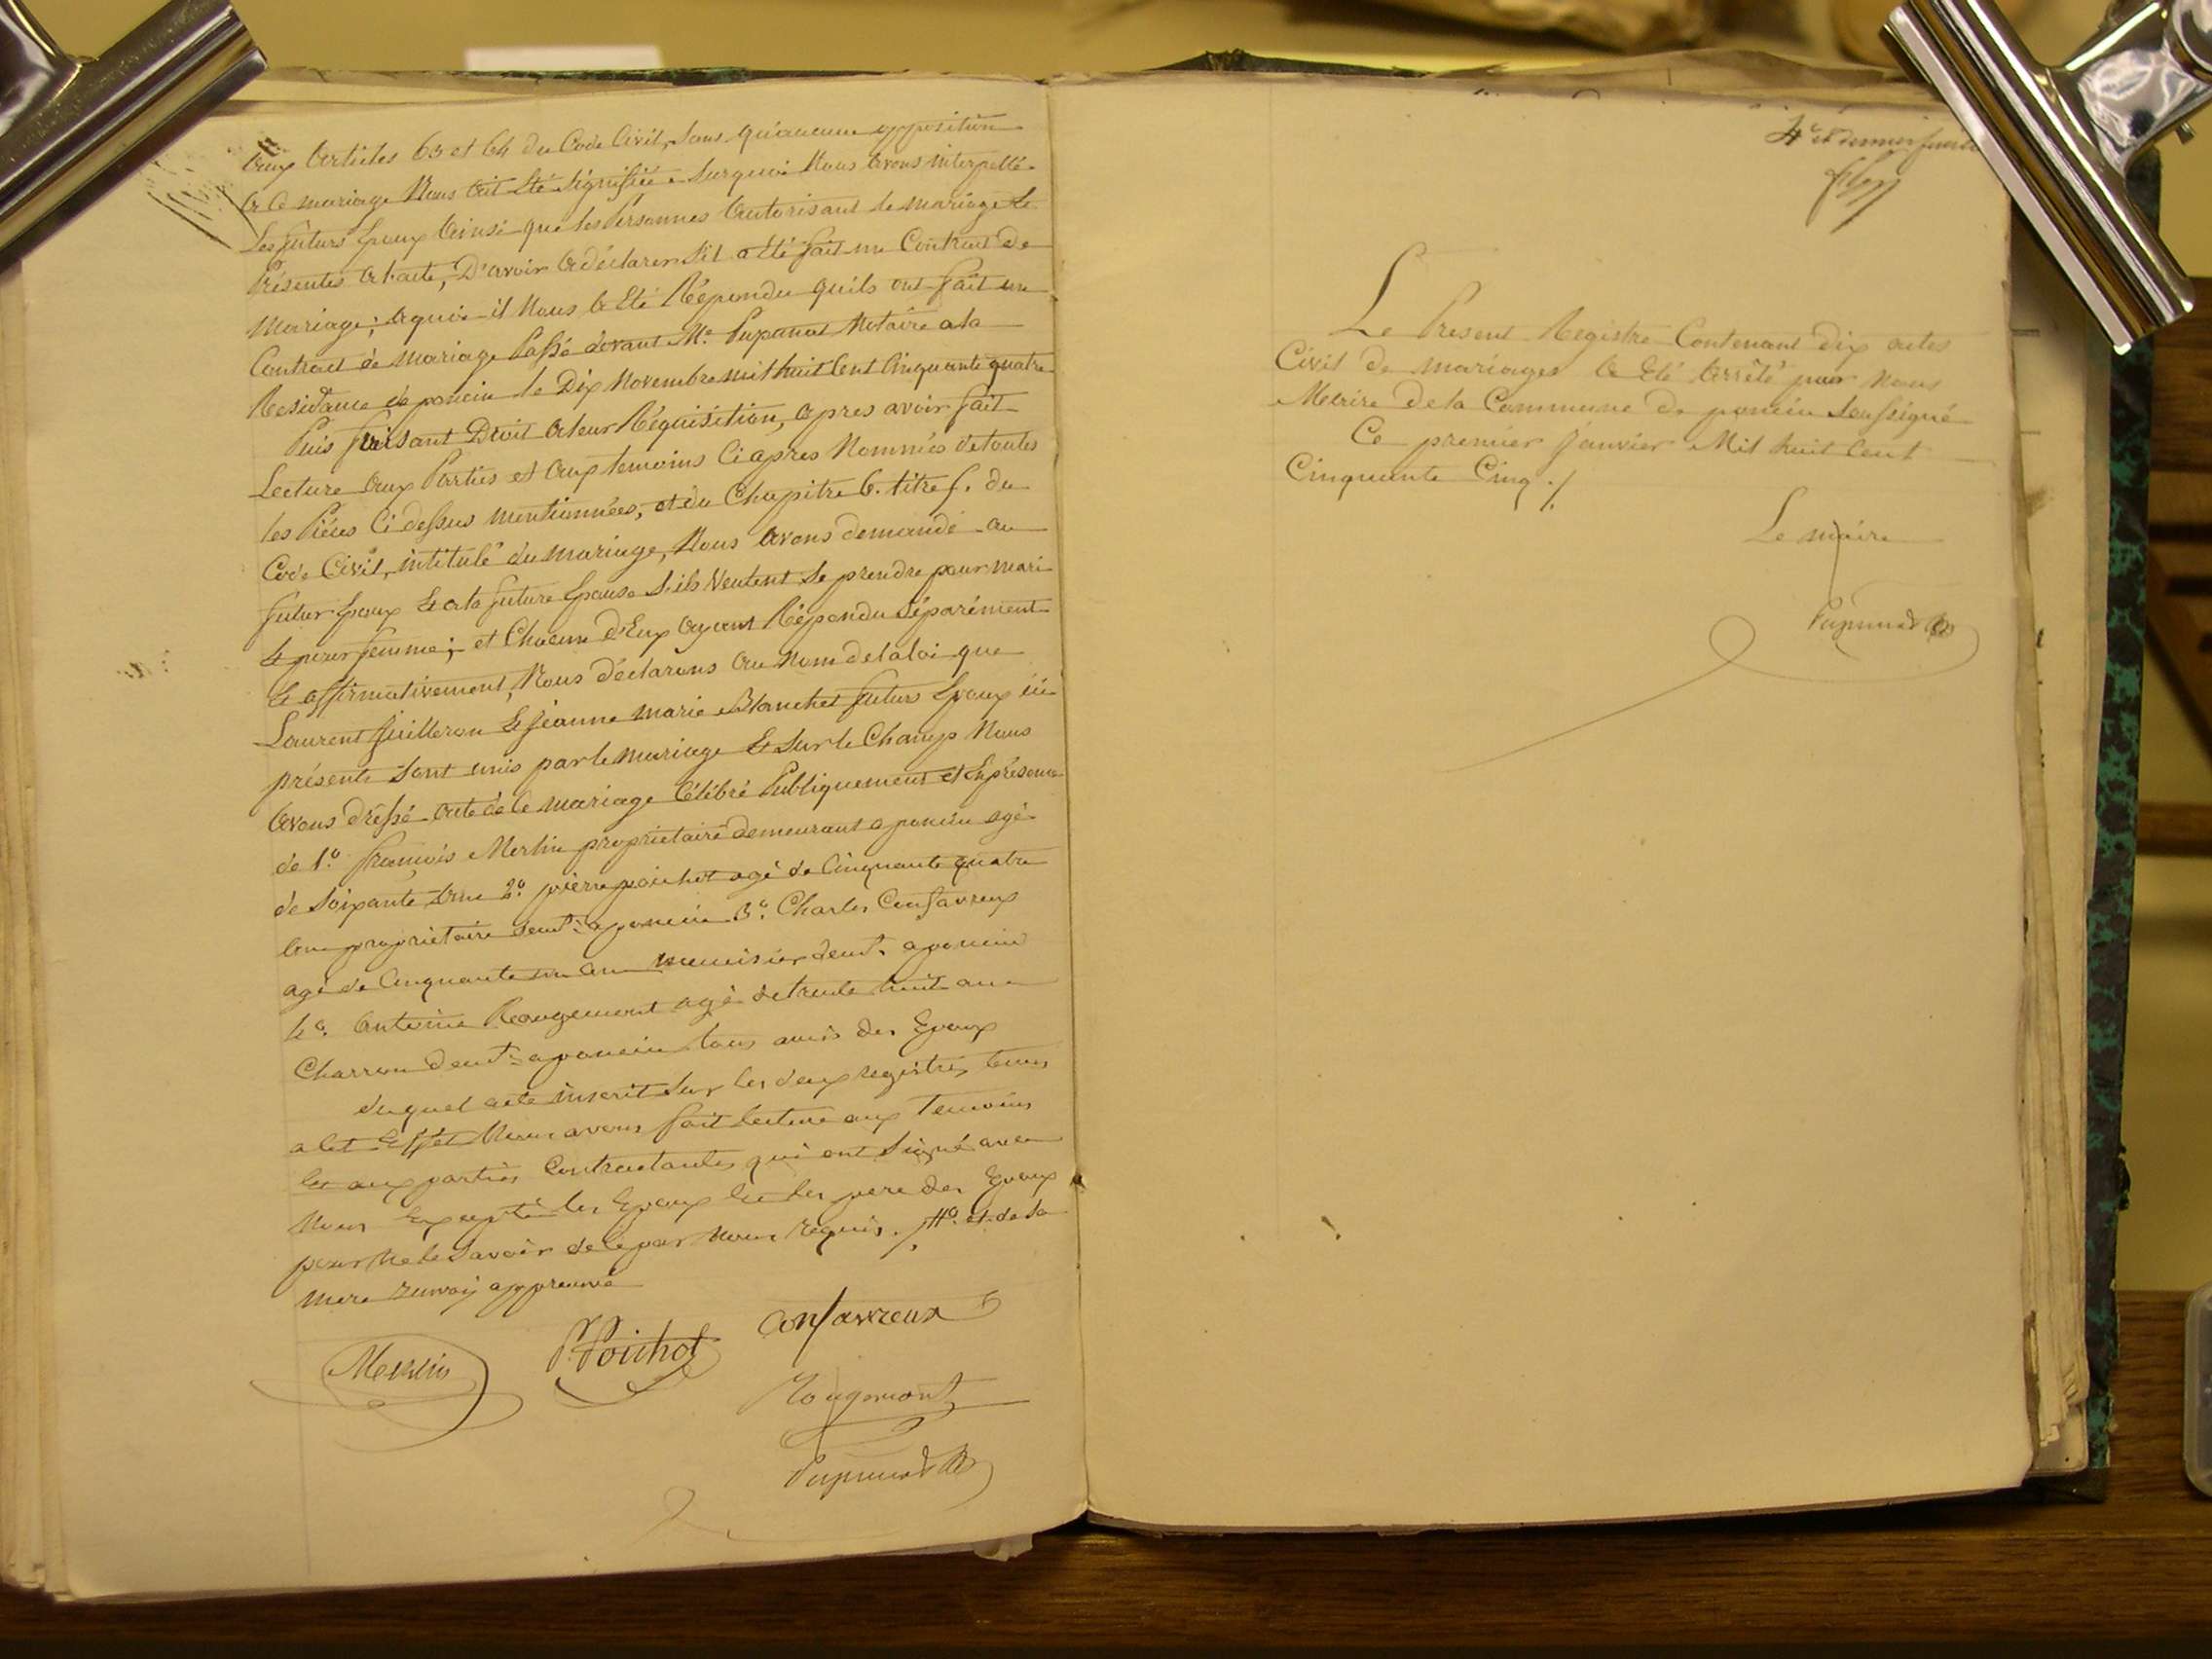 aux articles 63 et 64 du Code Civil, Sans qu'aucune opposition
a ce mariage Nous ait été Signifiée. Surquoi Nous avons interpellé
Les futurs Epoux ainsi que les Personnes autorisant le mariage Et
Présentes a l'acte, D'avoir a déclarer S'il a été fait un Contrat de
Mariage; aquoi il Nous a Eté Répondu quils ont fait un
Contrat de Mariage Passé devant Me. Pupunat Notaire a la
Residance de poncin le Dix Novembre mil huit Cent Cinquante quatre
Puis faisant Droit a leur Réquisition, apres avoir fait
Lecture aux Parties et aux temoins Ci après Nommés de toutes
les Pièces Ci dessus mentionnées, et du Chapitre 6. titre 5. du
Code Civil, intitulé du Mariage, Nous avons demandé au
futur Epoux Et a la future Epouse S'ils Veulent Se prendre pour Mari
Et pour femme; et Chacun d'Eux ayant Répondu Séparément
Et affirmativement, Nous déclarons au Nom de la loi que
Laurent Juilleron Et Jeanne Marie Blanchet futurs Epoux ici
présents Sont unis par le Mariage Et Sur le Champ Nous
avons dréssé acte de Ce Mariage Célébré Publiquement et En présence
de 1.º François Merlin proprietaire demeurant a poncin agé
de Soixante 2º. pierre poichot agé de Cinquante quatre
ans proprietaire demt. a poncin 3º. Charles Confavreux
agé de Cinquante un an menuisier demt. a poncin
4º. antoine Rougemont agé de trente huit ans
Charron demt. a poncin tous amis des Epoux
duquel acte inscrit Sur les deux registres tenus
a Cet Effet Nous avons fait lecture aux Temoins
Et aux parties Contractantes qui ont Signé avec
Nous Excepté les Epoux Et les pere des Epoux
pour Ne le Savoir de ce par Nous requis. /. #º. et de la
mere renvoi approuvé
Merlin P. Poichot Confavreux
Rougemont
Pupunat
4e et dernier feuillet
Le Present Registre Contenant Dix actes
Civil de mariages a Eté arrêté par Nous
Maire de la Commune de poncin Soussigné
Ce premier Janvier Mil huit Cent
Cinquante Cinq ./.
Le maire
Pupunat